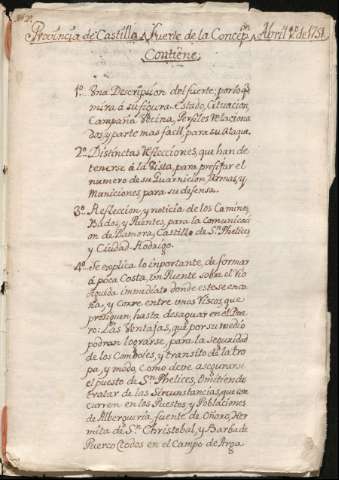 Provincia de Castilla Fuerte de la Concepⁿ Abril 1º de 1751
Contiene
1º. Una Descripsion del fuerte; por lo q̃
mira á su figura. Estado, Cituacion,
Campaña Vecina, Perfiles relaciona
dos, y parte mas facil, para su ataque.
2º. Distinctas reflecciones, que han de
tenerse á la Vista, para prefijar el
numero de su Guarnicion, Armas, y
Municiones, para su defensa.
3º. Refleccion, y noticia de los Caminos
Bados, y Puentes, para la Comunicac
cion de Zamora, Castillo de Sⁿ Phelices
y Ciudad Rodrigo.
4º. Se explica lo importante, de formar
á poca Costa, un Puente sobre el Rio
Agueda immediato donde este se enca
na, y corre entre unos Riscos, que
prosiguen, hasta desaguar en el Due
ro: Las Ventajas, que por su medio
podran lograrse, para la seguridad
de los Comboies, y transito de la tro
pa, y modo, como debe asegurarse
el puesto de Sⁿ Phelices, Omitiendo
tratar de las Circunstancias, que con
curren en los Puestos y Poblaciones
de Alberqueria, fuente de Oñoro, Her
mita de Sⁿ Christobal, y Barba de
Puerco, todos en el Campo de Arga